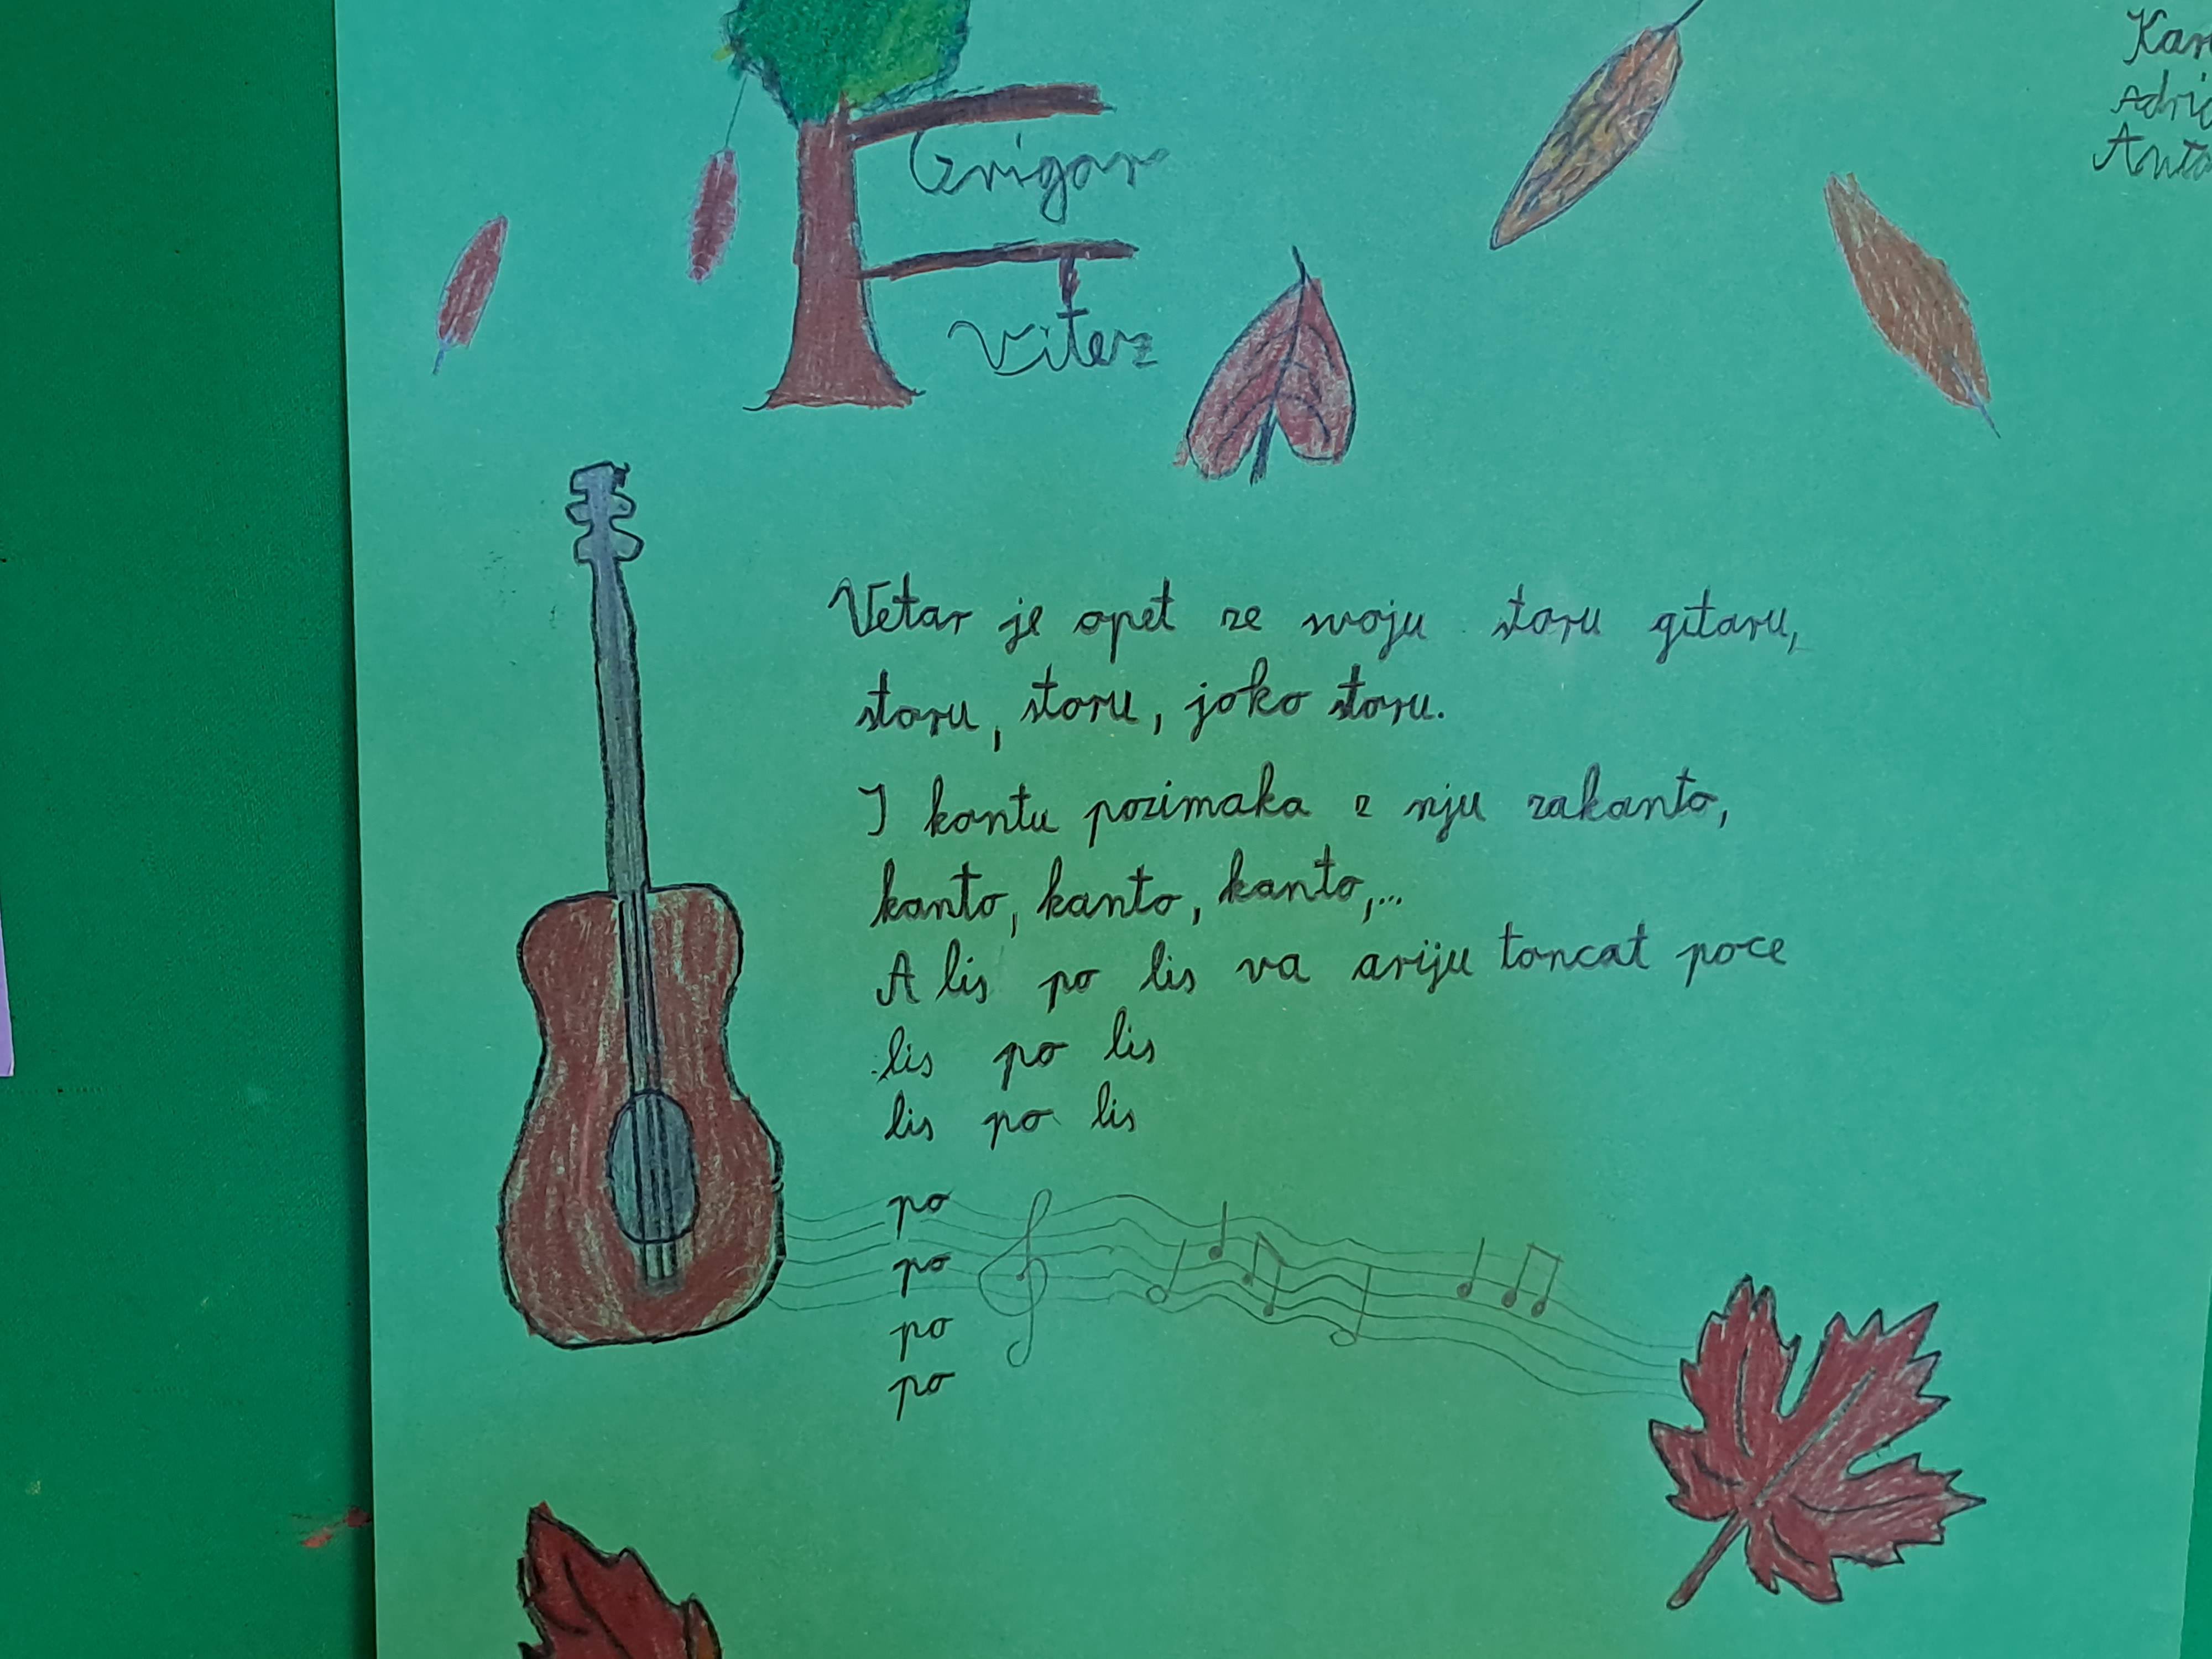 Grigor
Vitez
Vetar je opet ze svoju staru gitaru,
staru, staru, jako staru.
I kantu pozimaka z nju zakanta,
kanta, kanta, kanta,...
A lis po lis va ariju tancat poce
lis po lis
lis po lis
po
po
po
po